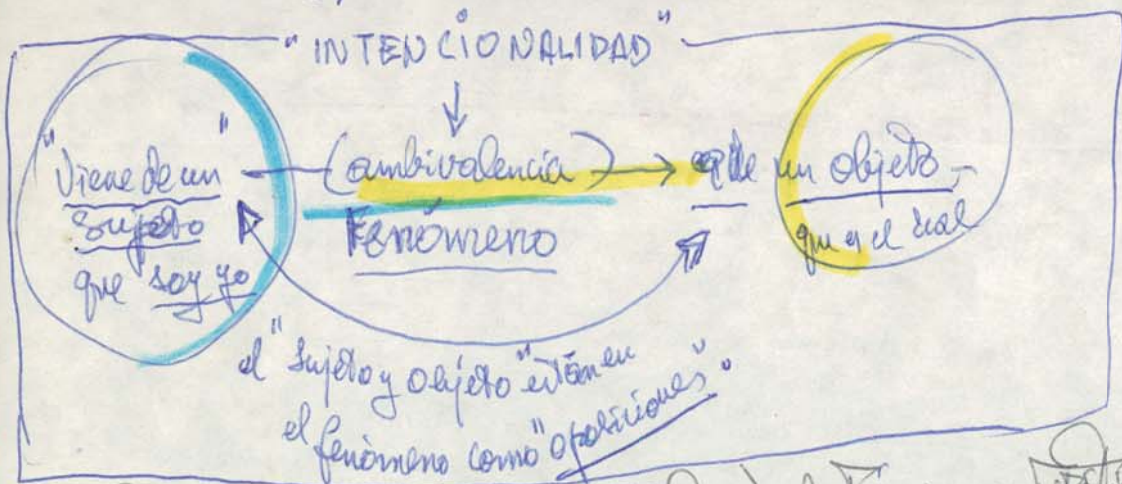 "INTENCIONALIDAD"
"Viene de un"
sujeto
que soy yo
(ambivalencia)
FENÓMENO
de un objeto -
que es el real
el "sujeto y objeto" están en
el fenómeno como "oposiciones".